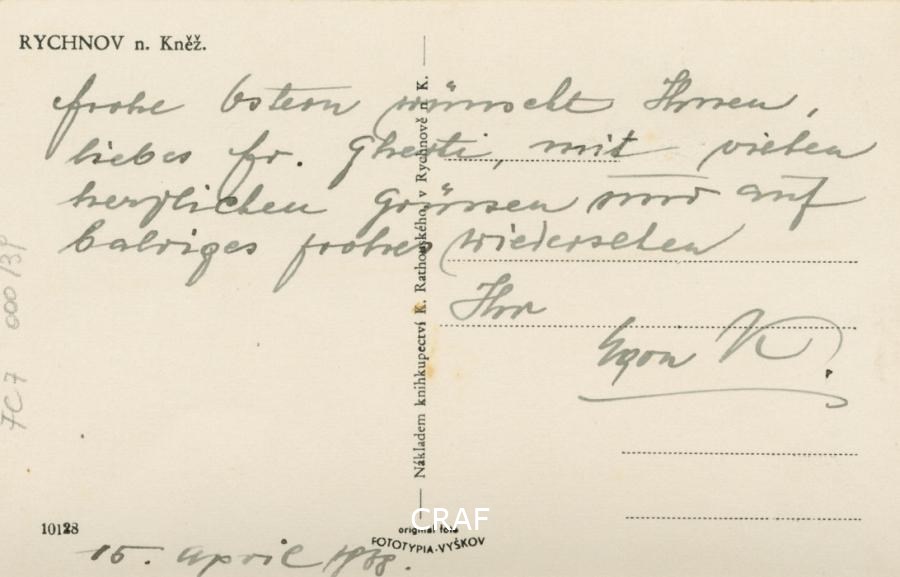 RYCHNOV n. Kněž.
frohe Ostern wünscht Ihnen,
liebes Fr. Gherti, mit vielen
herzlichen Grüssen und auf
baldiges frohes wiedersehen
Ihr
Egon K.
Nákladem knihkupectví K. Rathouského, v Rychnově n. K.
7C7 000 139
10128
original foto
FOTOTYPIA-VYŠKOV
CRAF
15. April 1938.